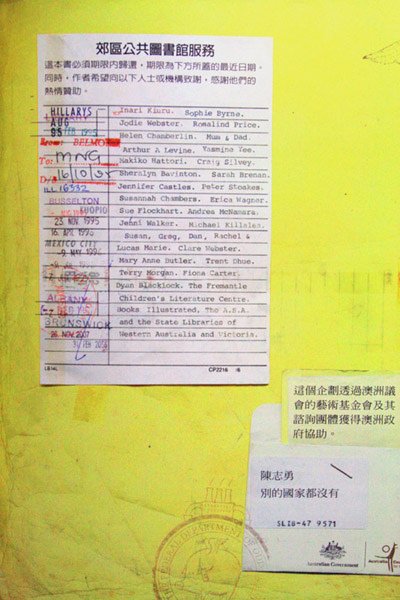 郊區公共圖書館服務
這本書必須期限內歸還，期限為下方所蓋的最近日期。
同時，作者希望向以下人士或機構致謝，感謝他們的
熱情贊助。
HILLARYS
AUG
95
BELMO
To: MNG
16/10/95
ILL 16332
BUSSELTON
KUOPIO
23 NOV 1995
16 APR 1996
MEXICO CITY
9 MAY 1996
ALBANY
BRUNSWICK
26 NOV 2007
Inari Kiuru. Sophie Byrne.
Jodie Webster. Rosalind Price.
Helen Chamberlin. Mum & Dad.
Arthur A Levine. Yasmine Tee.
Makiko Hattori. Craig Silvey.
Sheralyn Bavinton. Sarah Brenan.
Jennifer Castles. Peter Stoakes.
Susannah Chambers. Erica Wagner.
Sue Flockhart. Andrea McNamara.
Jenni Walker. Michael Killalea.
Susan, Greg, Dan, Rachel &
Lucas Marie. Clare Webster.
Mary Anne Butler. Trent Dhue.
Terry Morgan. Fiona Carter.
Dyan Blacklock. The Fremantle
Children's Literature Centre.
Books Illustrated. The A.S.A.
and the State Libraries of
Western Australia and Victoria.
LB14L
CP2216
這個企劃透過澳洲議
會的藝術基金會及其
諮詢團體獲得澳洲政
府協助。
陳志勇
別的國家都沒有
SLIB-47 9571
Australian Government